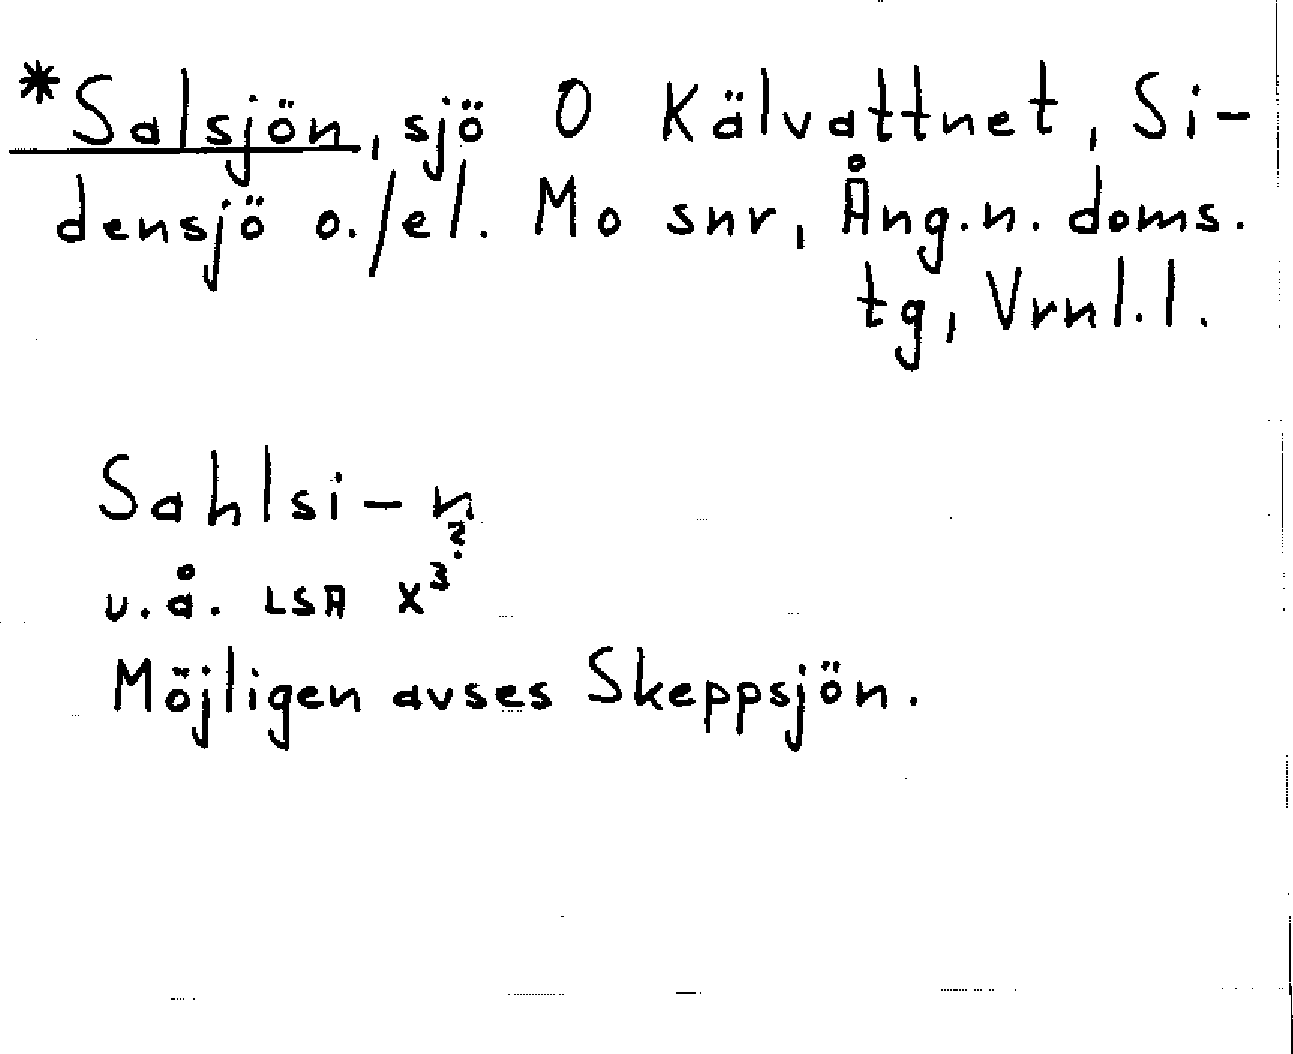 *Salsjön, sjö O Kälvattnet, Si-
densjö o./el. Mo snr, Ång.n. doms.
tg, Vrnl.l.
Sahlsi-n
u.å. LSA X³·²
Möjligen avses Skeppsjön.